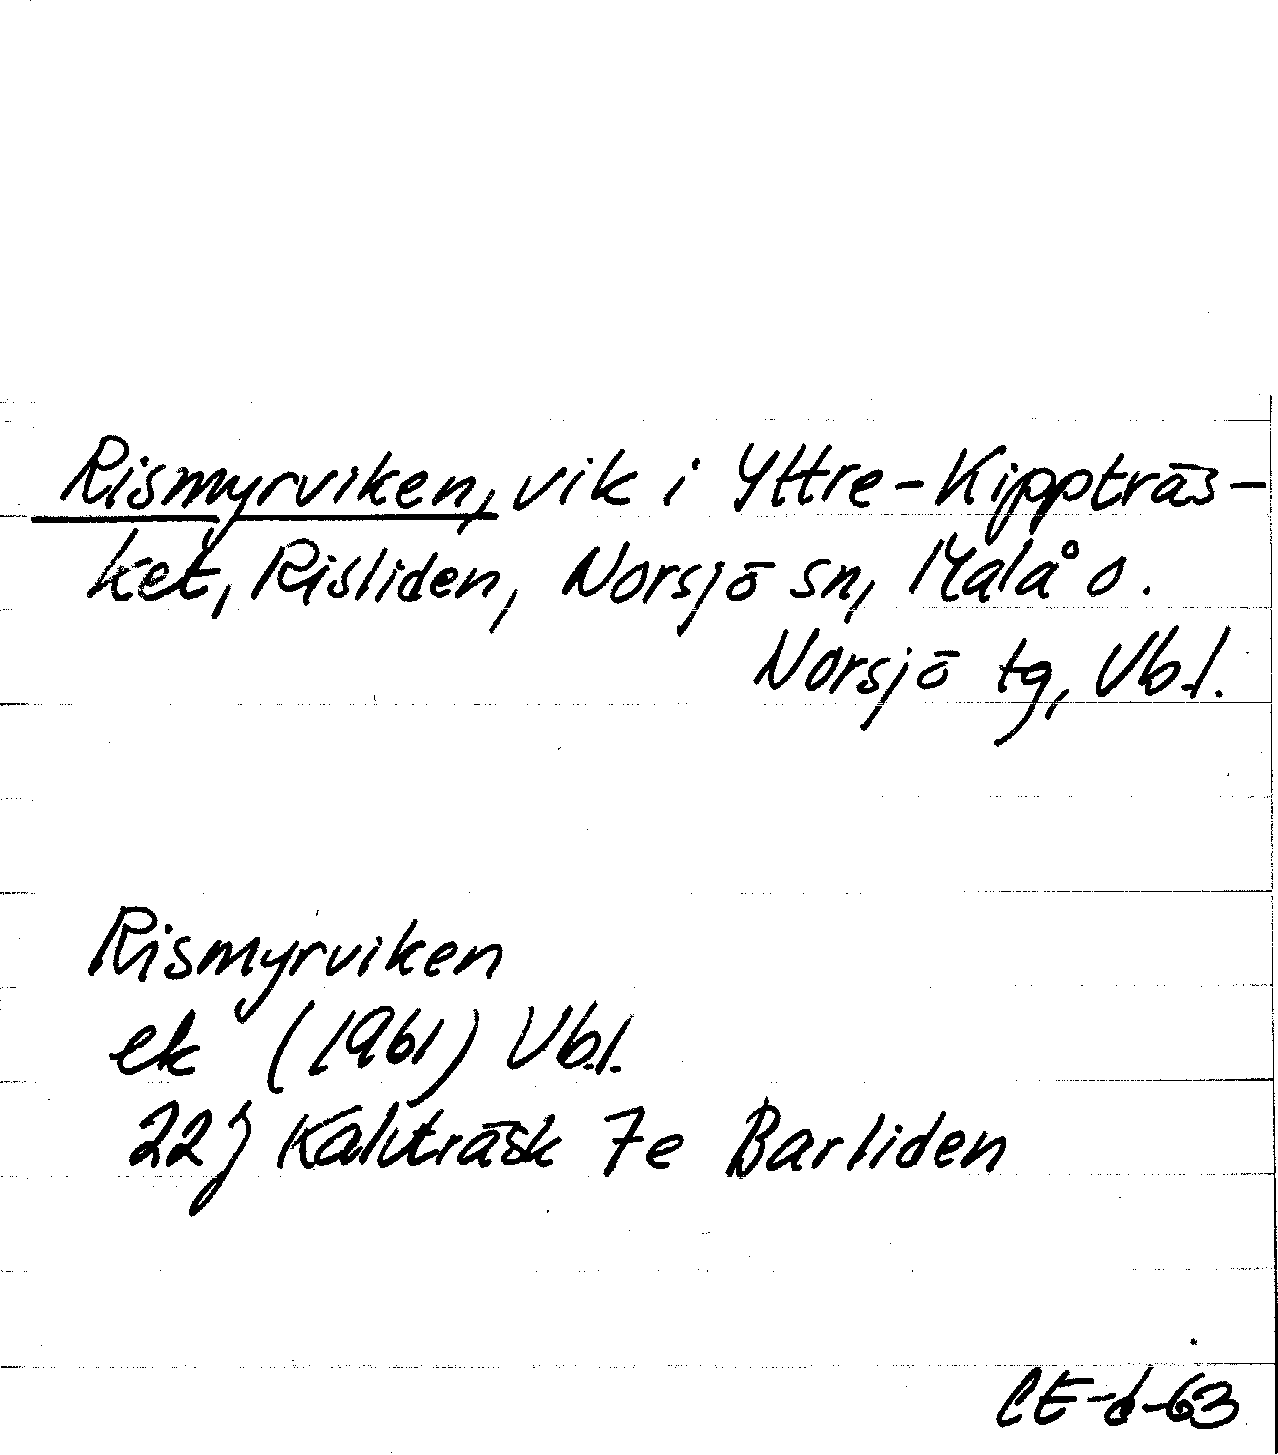 Rismyrviken, vik i Yttre-Kippträs-
ket, Risliden, Norsjö sn, Malå o.
Norsjö tg, Vb.l.
Rismyrviken
ek (1961) Vb.l.
22J Kalvträsk 7e Barliden
CE-d-63